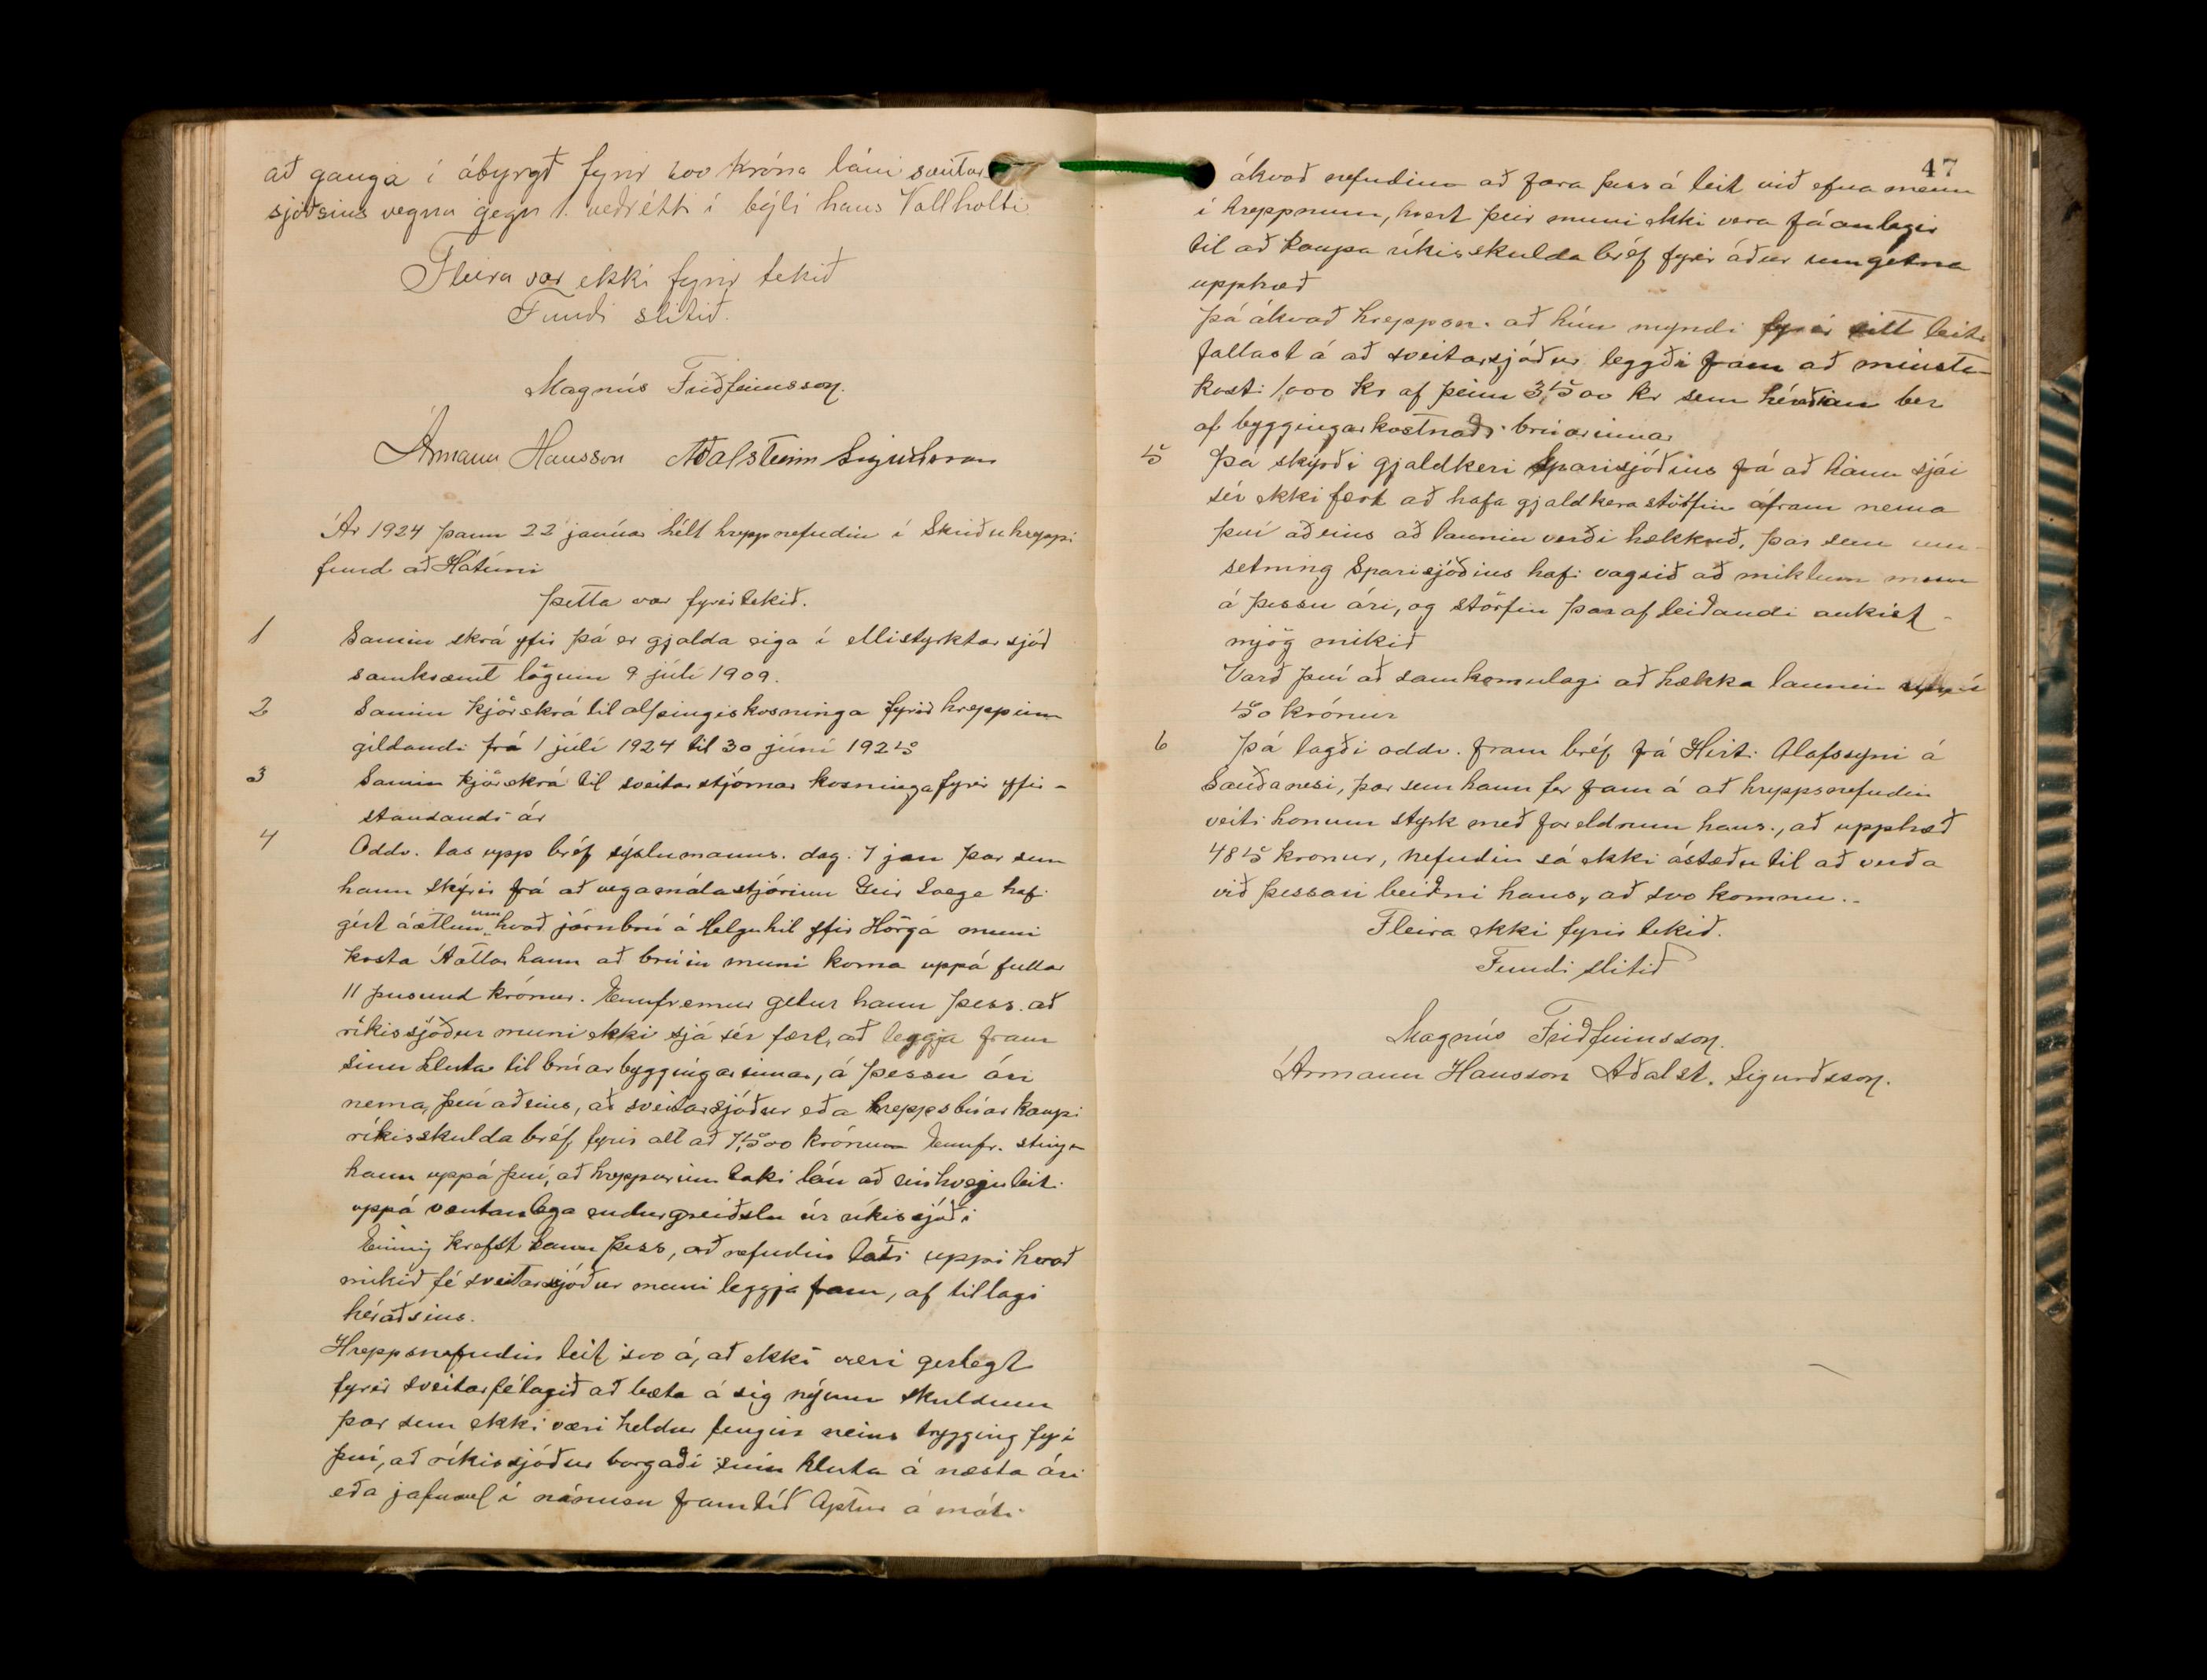 að ganga í ábyrgð fyrir 200 króna láni sveitar
sjóðsins vegna gegn 1. veðrétti í býli hans Vallholti
Fleira var ekki fyrir tekið
Fundi slitið.
Magnús Friðfinnsson.
Ármann Hansson Aðalsteinn Sigurðsson
Ár 1924 þann 22 janúar hélt hreppsnefndin í Skriðuhreppi
fund að Hátúni
Þetta var fyrirtekið.
1 Samin skrá yfir þá er gjalda eiga í ellistyrktarsjóð
samkvæmt lögum 9 júlí 1909.
2 Samin kjörskrá til alþingiskosninga fyrir hreppinn
gildandi frá 1 júlí 1924 til 30 júní 1925
3 Samin kjörskrá til sveitarstjórnar kosninga fyrir yfir-
standandi ár
4 Oddv. las upp bréf sýslumanns. dag. 7 jan þar sem
hann skýrir frá að vegamálastjórinn Geir Zoega hafi
gert áætlun um hvað járnbrú á Helguhil yfir Hörgá muni
kosta Áætlar hann að brúin muni koma uppá fullar
11 þusund krónur. Ennfremur getur hann þess. að
ríkissjóður muni ekki sjá sér fært, að leggja fram
sinn hluta til brúarbyggingarinnar, á þessu ári
nema, því aðeins, að sveitarsjóður eða hreppsbúar kaupi
ríkisskuldabréf, fyrir alt að 7,500 krónum Ennfr. stingr
hann uppá því, að hreppurinn taki lán að einhverju leiti
uppá væntanlega endurgreiðslu úr ríkissjóði
Einnig krefst hann þess, að nefndin láti uppi hvað
mikið fé sveitarsjóður muni leggja fram, af tillagi
héraðsins.
Hreppsnefndin leit svo á, að ekki væri gerlegt
fyrir sveitarfélagið að bæta á sig nýjum skuldum
þar sem ekki væri heldur fengin neins trygging fyri
því, að ríkissjóður borgaði sinn hluta á næsta ári
eða jafnvel í náinni framtíð Aptur á móti
47
ákvað nefndin að fara þess á leit við efna menn
í hreppnum, hvort þeir muni ekki vera fáanlegir
til að kaupa ríkisskuldabréf fyrir áður umgetna
upphæð
Þá ákvað hreppsn. að hún myndi fyrir sitt leiti
fallast á að sveitarsjóður leggði fram að minsta
kosti 1,000 kr af þeim 3,500 kr sem héraðinu ber
af byggingarkostnaði brúarinnar
5 Þá skýrði gjaldkeri Sparisjóðsins frá að hann sjái
sér ekki fært að hafa gjaldkerastörfin áfram nema
því aðeins að launin verði hækkuð, þar sem um-
setning Sparisjóðsins hafi vagsið að miklum mun
á þessu ári, og störfin þar af leiðandi aukist
mjög mikið
Varð því að samkomulagi að hækka launin uppí
50 krónur
6 Þá lagði oddv. fram bréf frá Hirti Olafssyni á
Sauðanesi, þar sem hann fer fram á að hreppsnefndin
veiti honum styrk með foreldrum hans., að upphæð
485 kronur, nefndin sá ekki ástæðu til að verða
við þessari beiðni hans, að svo komnu..
Fleira ekki fyrir tekið.
Fundi slitið
Magnús Friðfinnsson.
Ármann Hansson Aðalst. Sigurðsson.